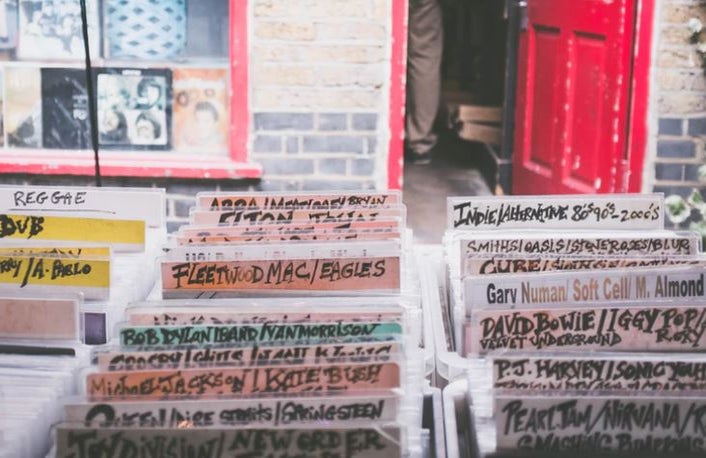 REGGAE
DUB
/A. PABLO
ABBA/MEATLOAF/BRYAN
ELTON
FLEETWOOD MAC/EAGLES
BOB DYLAN/BAND/VAN MORRISON
MICHAEL JACKSON/KATE BUSH
QUEEN/DIRE STRAITS/SPRINGSTEEN
JOY DIVISION/NEW ORDER
INDIE/ALTERNATIVE 80'S 90'S 2000'S
SMITHS/OASIS/STONE ROSES/BLUR
CURE/
Gary Numan/ Soft Cell/ M. Almond
DAVID BOWIE/IGGY POP/
VELVET UNDERGROUND
P.J. HARVEY/SONIC YOUTH
PEARL JAM/NIRVANA/
SMASHING PUMPKINS